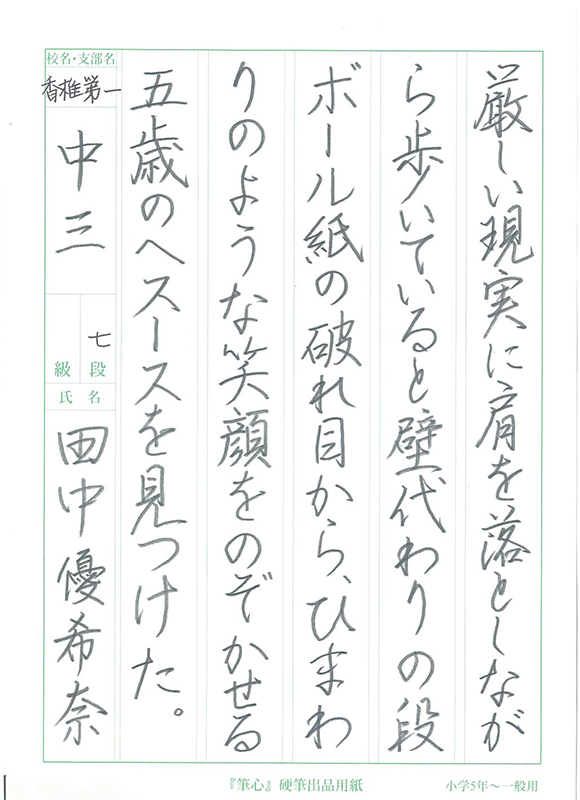 厳しい現実に肩を落としなが
ら歩いていると壁代わりの段
ボール紙の破れ目から、ひまわ
りのような笑顔をのぞかせる
五歳のヘスースを見つけた。
校名・支部名
香椎第一
中三
七
級 段
氏 名
田中優希奈
『筆心』硬筆出品用紙
小学5年〜一般用